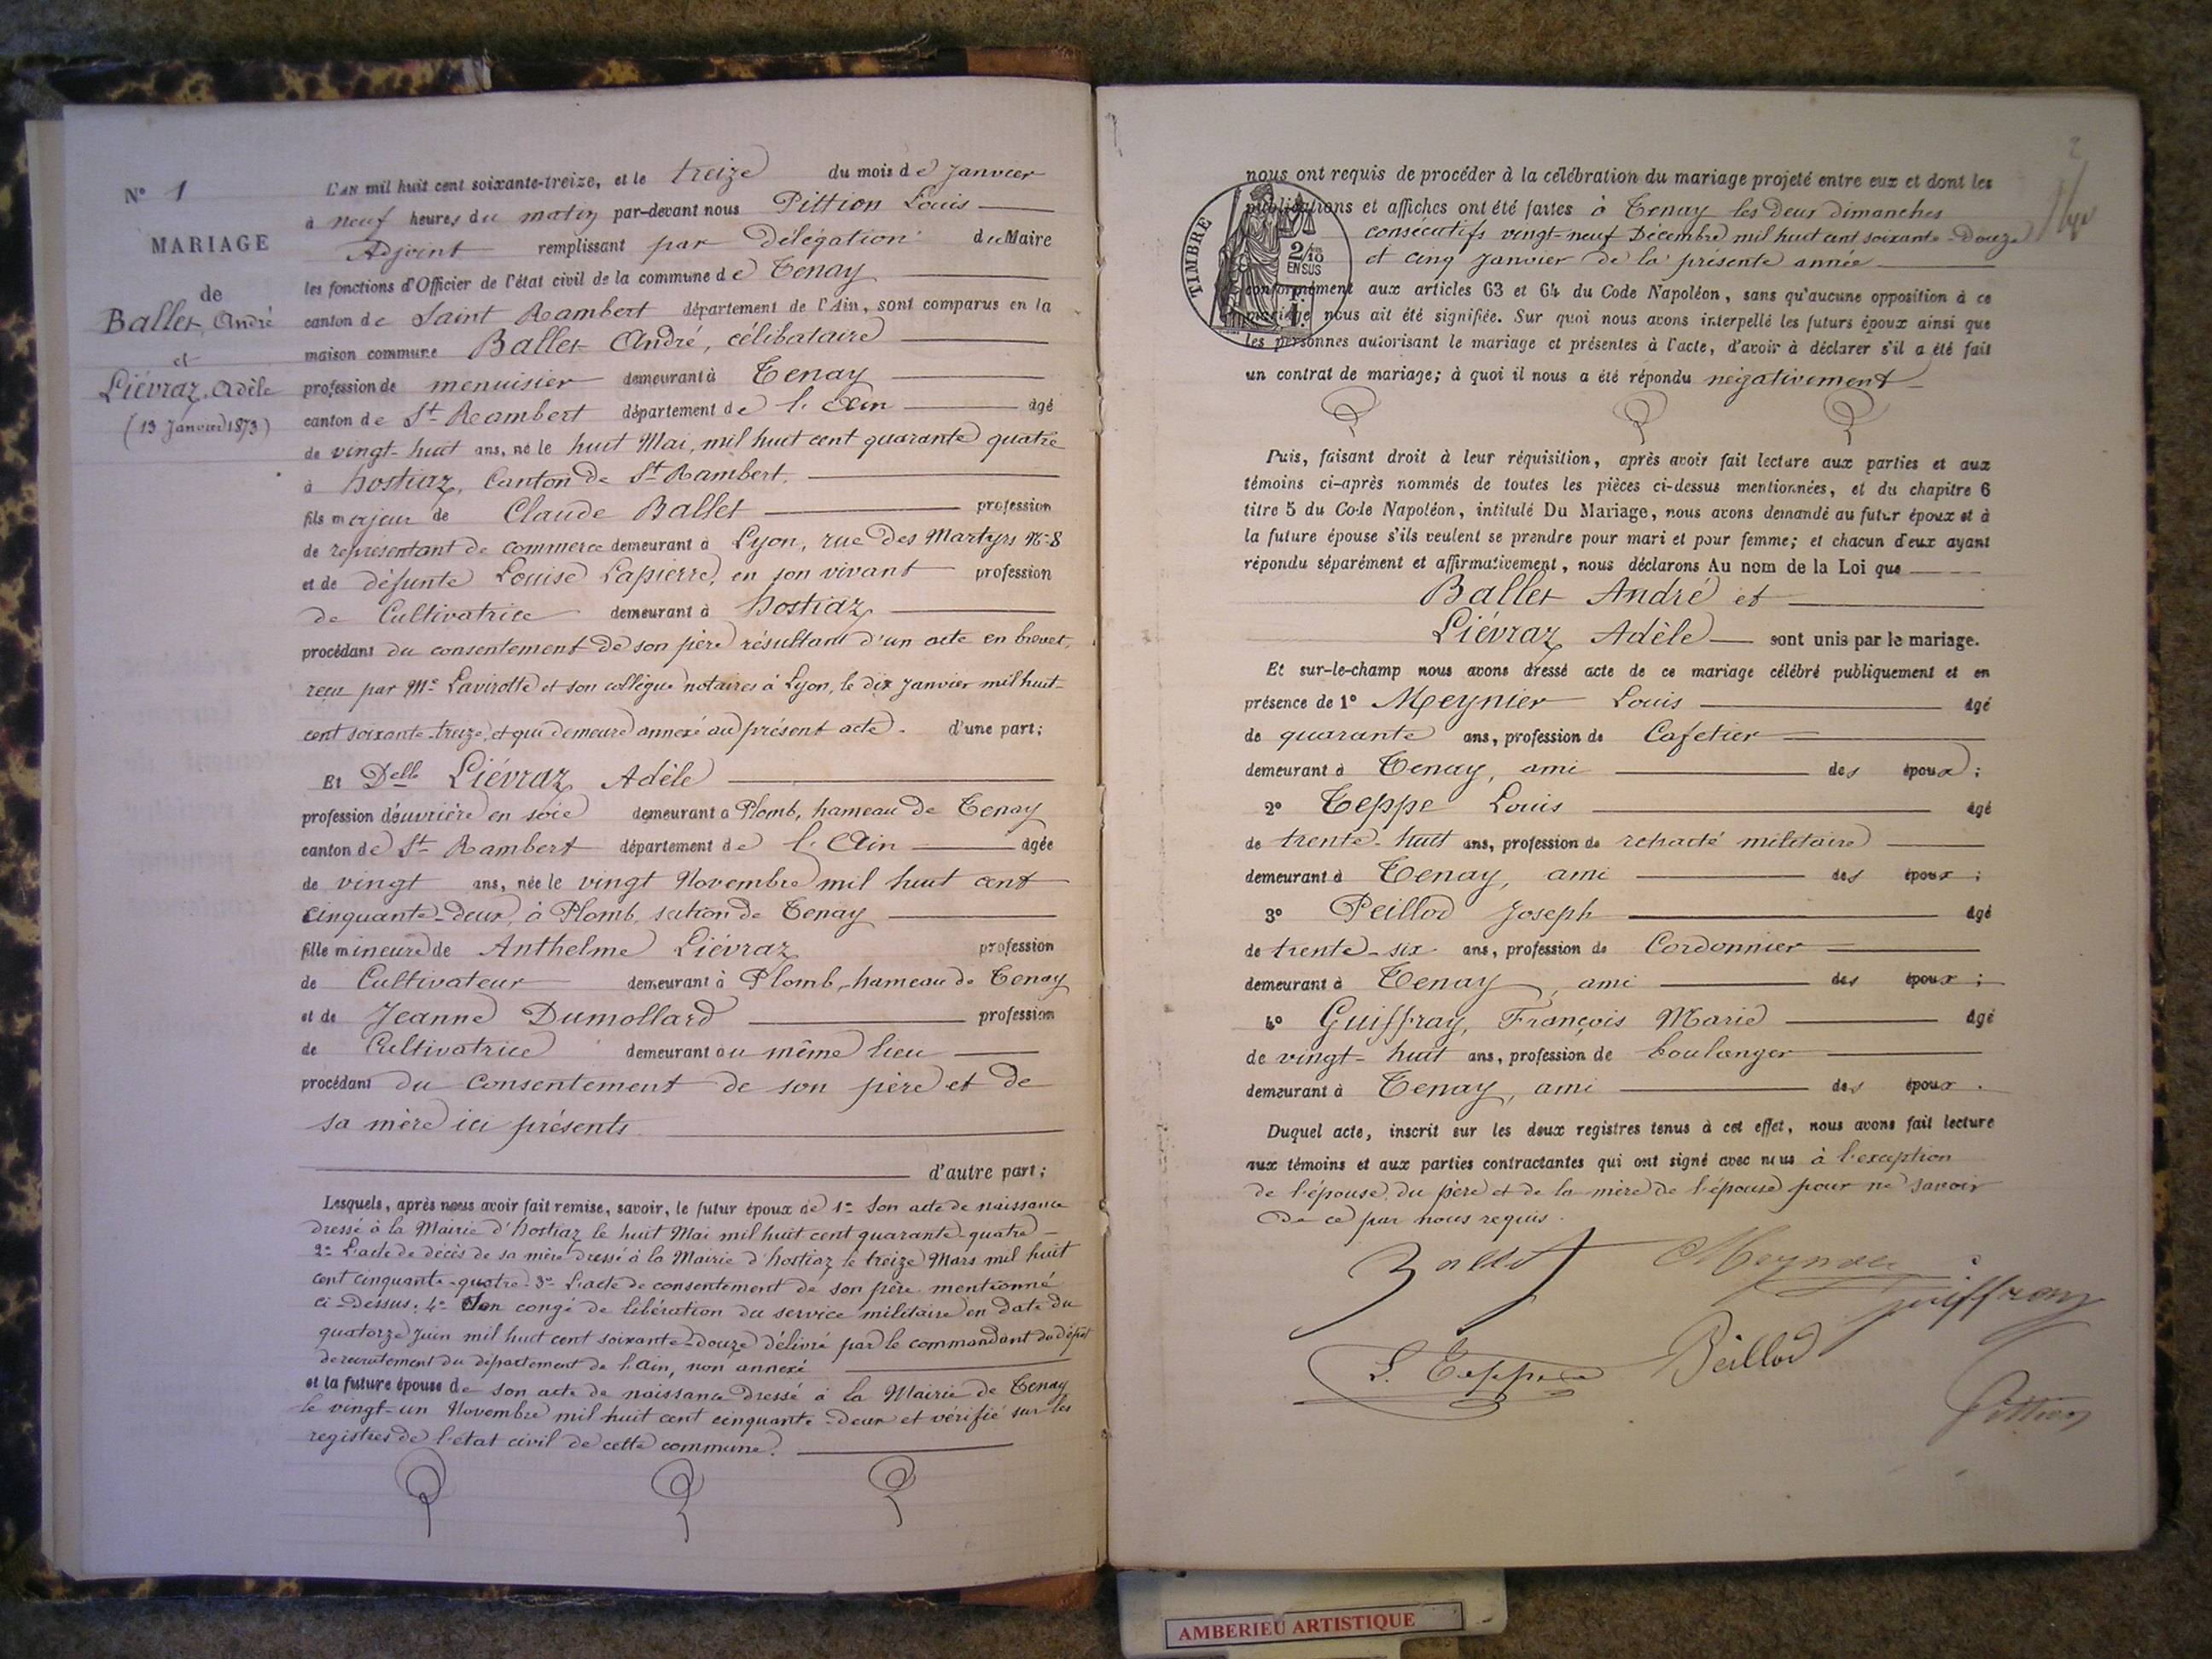 N° 1
MARIAGE
de
Ballet, André
et
Liévraz, Adèle
(13 Janvier 1873)
L'AN mil huit cent soixante-treize, et le treize du mois de Janvier
à neuf heures du matin par-devant nous Pittion Louis
Adjoint remplissant par délégation du Maire
les fonctions d'Officier de l'état civil de la commune de Tenay
canton de Saint Rambert département de l'Ain, sont comparus en la
maison commune Ballet André, célibataire
profession de menuisier demeurant à Tenay
canton de St Rambert département de l'Ain âgé
de vingt-huit ans, né le huit Mai, mil huit cent quarante quatre
à hostiaz, Canton de St Rambert,
fils majeur de Claude Ballet profession
de représentant de commerce demeurant à Lyon, rue des Martyrs No 8
et de défunte Louise Lapierre, en son vivant profession
de Cultivatrice demeurant à hostiaz
procédant du consentement de son père résultant d'un acte en brevet,
reçu par Me Lavirotte et son collègue notaires à Lyon, le dix Janvier mil huit-
cent soixante-treize, et qui demeure annexé au présent acte. d'une part;
Et Delle Liévraz Adèle
profession d'ouvrière en soie demeurant à Plomb, hameau de Tenay
canton de St Rambert département de l'Ain âgée
de vingt ans, née le vingt Novembre mil huit cent
cinquante-deux, à Plomb, section de Tenay
fille mineure de Anthelme Liévraz profession
de Cultivateur demeurant à Plomb, hameau de Tenay
et de Jeanne Dumollard profession
de Cultivatrice demeurant au même lieu
procédant du consentement de son père et de
sa mère ici présents
d'autre part;
Lesquels, après nous avoir fait remise, savoir, le futur époux de 1° Son acte de naissance
dressé à la Mairie d'hostiaz le huit Mai mil huit cent quarante-quatre -
2° L'acte de décès de sa mère dressé à la Mairie d'hostiaz le treize Mars mil huit
cent cinquante-quatre. 3° L'acte de consentement de son père mentionné
ci-dessus; 4° Son congé de libération du service militaire en date du
quatorze Juin mil huit cent soixante-douze délivré par le commandant du dépôt
de recrutement du département de l'Ain, non annexé
et la future épouse de son acte de naissance dressé à la Mairie de Tenay
le vingt-un Novembre mil huit cent cinquante-deux et vérifié sur les
registres de l'état civil de cette commune.
2
nous ont requis de procéder à la célébration du mariage projeté entre eux et dont les
publications et affiches ont été faites à Tenay les deux dimanches
consécutifs vingt-neuf Décembre mil huit cent soixante-douze
et cinq Janvier de la présente année
TIMBRE
2/10
EN SUS
conformément aux articles 63 et 64 du Code Napoléon, sans qu'aucune opposition à ce
mariage nous ait été signifiée. Sur quoi nous avons interpellé les futurs époux ainsi que
les personnes autorisant le mariage et présentes à l'acte, d'avoir à déclarer s'il a été fait
un contrat de mariage; à quoi il nous a été répondu négativement
Puis, faisant droit à leur réquisition, après avoir fait lecture aux parties et aux
témoins ci-après nommés de toutes les pièces ci-dessus mentionnées, et du chapitre 6
titre 5 du Code Napoléon, intitulé Du Mariage, nous avons demandé au futur époux et à
la future épouse s'ils veulent se prendre pour mari et pour femme; et chacun d'eux ayant
répondu séparément et affirmativement, nous déclarons Au nom de la Loi que
Ballet André et
Liévraz Adèle sont unis par le mariage.
Et sur-le-champ nous avons dressé acte de ce mariage célébré publiquement et en
présence de 1° Meynier Louis âgé
de quarante ans, profession de Cafetier
demeurant à Tenay, ami des époux;
2° Teppe Louis âgé
de trente-huit ans, profession de retraité militaire
demeurant à Tenay, ami des époux;
3° Peillod Joseph âgé
de trente-six ans, profession de Cordonnier
demeurant à Tenay, ami des époux;
4° Guiffray, François Marie âgé
de vingt-huit ans, profession de boulanger
demeurant à Tenay, ami des époux.
Duquel acte, inscrit sur les deux registres tenus à cet effet, nous avons fait lecture
aux témoins et aux parties contractantes qui ont signé avec nous à l'exception
de l'épouse, du père et de la mère de l'épouse pour ne savoir
de ce par nous requis.
Ballet Meynier
Guiffray
L. Teppe Peillod
Pittion
AMBERIEU ARTISTIQUE